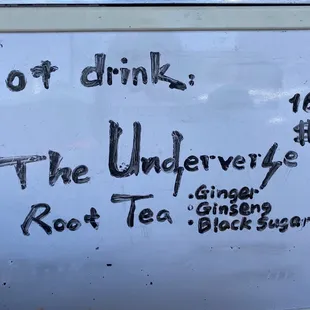 ot drink:
The Underverse
Root Tea
• Ginger
• Ginseng
• Black Sugar